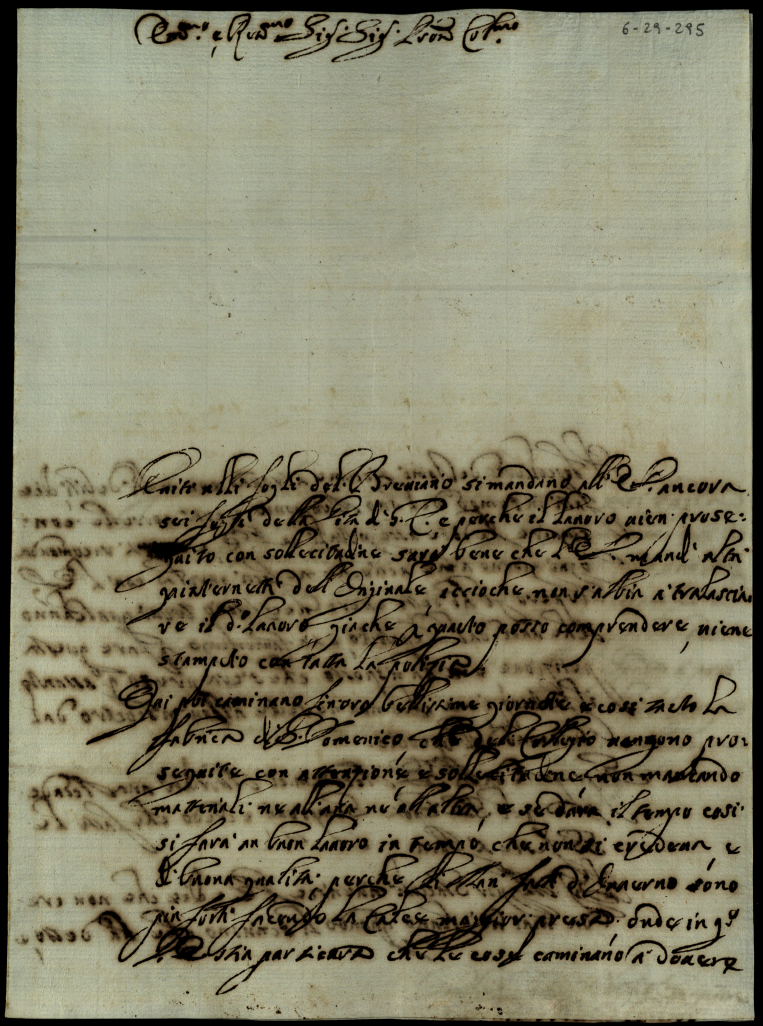 Em.mo e Rev.mo Sig.r Sig.r Pron Col.mo
6-29-295
Uniti alli fogli del Breviario si mandano all' E. V. ancora
sei fogli della Vita di S. R. e perche il lavoro vien prose:
guito con sollecitudine sarà bene che l' E. V. mandi altri
quinternetti dell' Originale accioche non s'abbia à tralascia
re il d.o lavoro giache p quanto posso comprendere, viene
stampato con tutta la politia
Qui poi caminano sinora bellissime giornate e così tanto la
fabrica di S. Domenico che del Collegio vengono pro:
seguite con attentione e sollecitudine non mancando
materiali ne all'una ne all'altra, e se darà il tempo così
si farà un buon lavoro in tempo che non si credeva e
di buona qualità, perche li muri fatti d'Inverno sono
più forti facendo la Calce maggior presa onde in q.to
stia sicura che le cose caminano à dovere